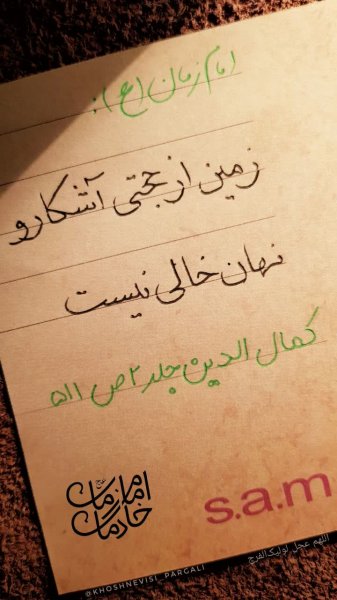 امام زمان (عج):
زمین از حجتی آشکار و
نهان خالی نیست
کمال الدین جلد ۲ ص ۵۱۱
امام زمان
خادمان
s.a.m
اللهم عجل لولیک الفرج
@KHOSHNEVISI_PARGALI